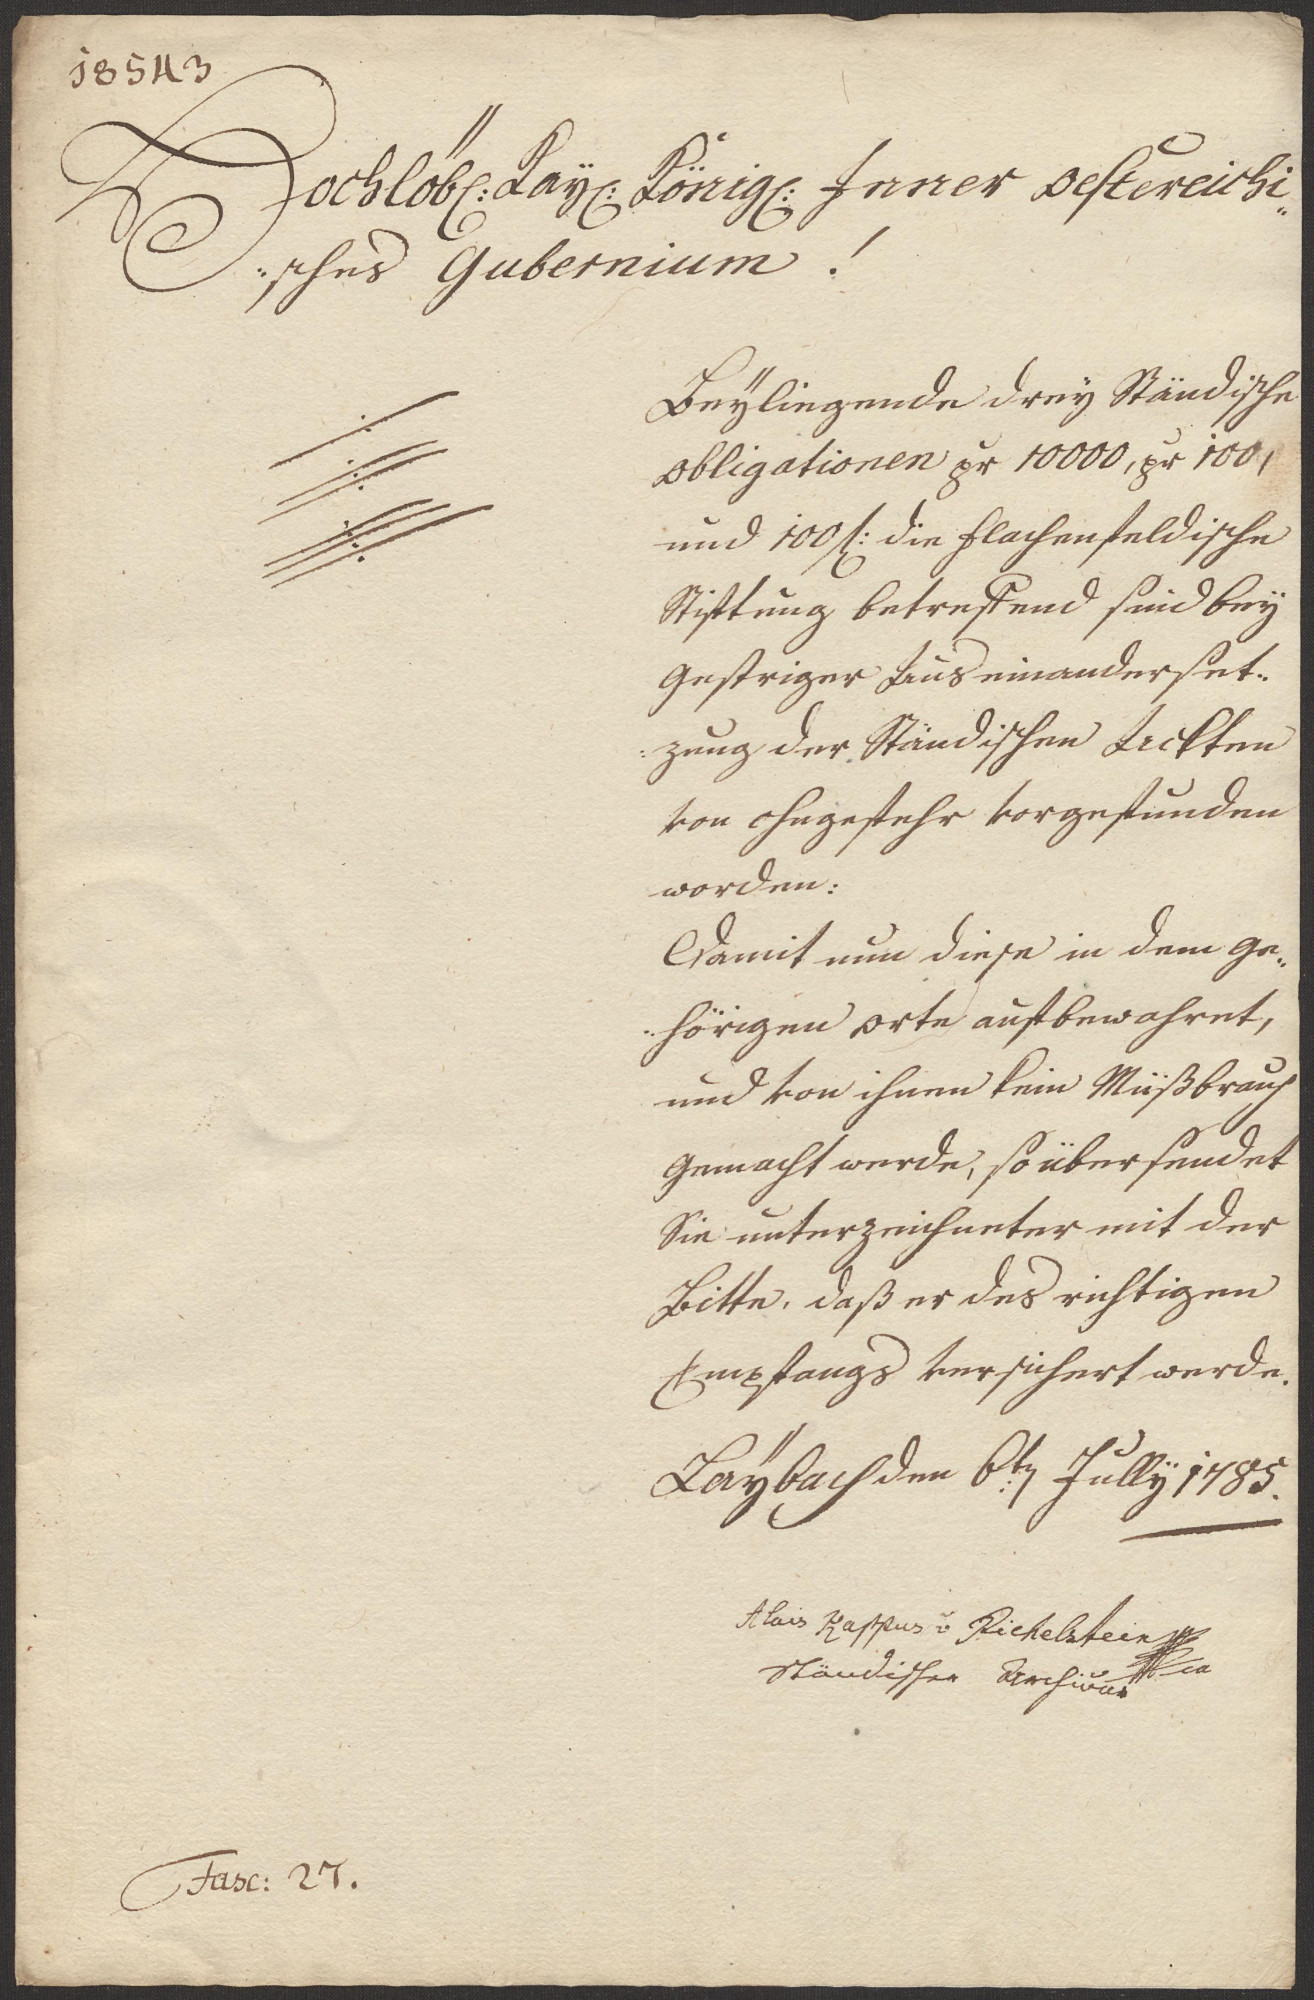 18543
Hochlöbl: Kay: Königl: Inner oestereichi„
:sches Gubernium !
Beÿliegende dreÿ Ständische
obligationen pr 10000, pr 100,
und 100 f: die flachenfeldische
Stiftung betreffend sind beÿ
gestriger Auseinanderset:
:zung der Ständischen Ackten
von ohngefehr vorgefunden
worden:
Damit nun diese in dem ge„
:hörigen orte aufbewahret,
und von ihnen kein Müßbrauch
gemacht werde, so übersendet
Sie unterzeichneter mit der
Bitte, daß er des richtigen
Empfangs versichert werde.
Laÿbach den 6t Jullÿ 1785.
Alois Kappus v Pichelstein
Ständischer Archivar
Fasc: 27.